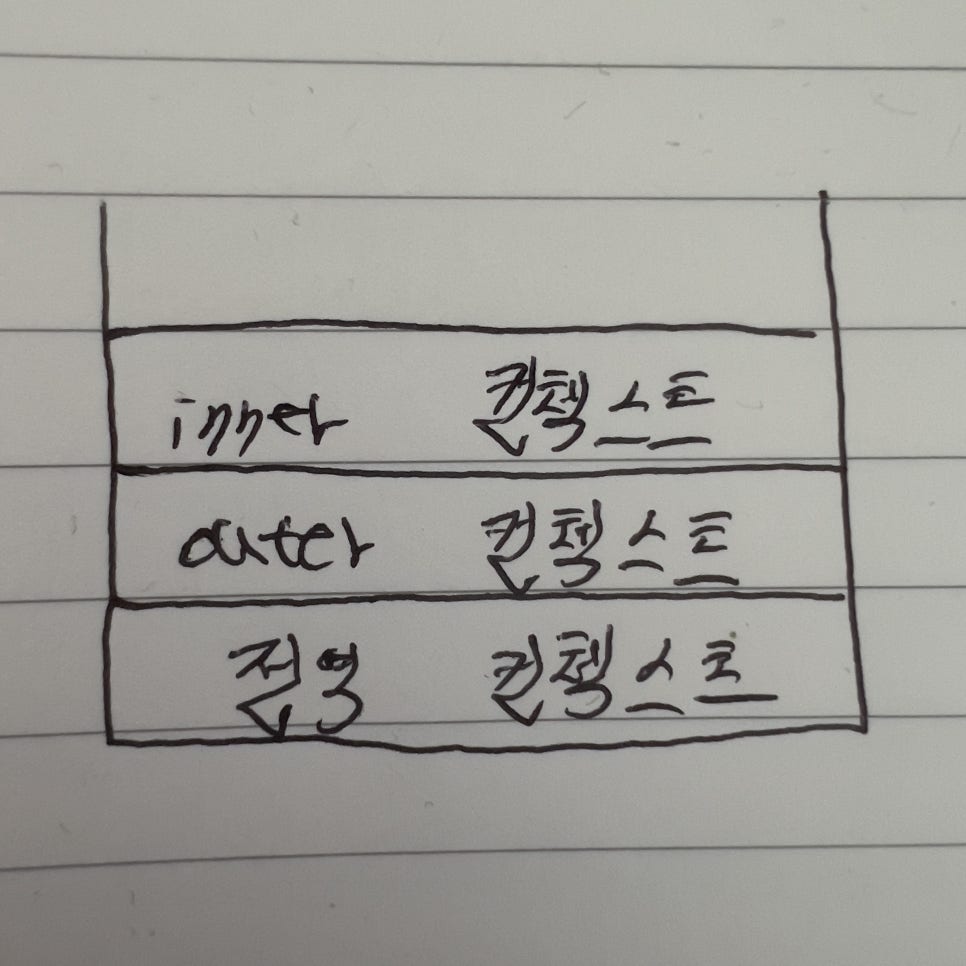 inner 컨텍스트
outer 컨텍스트
전역 컨텍스트